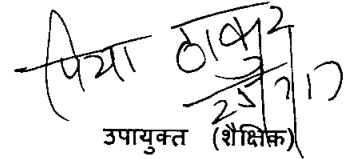 प्रिया ठाकुर
25/7/17
उपायुक्त (शैक्षिक)